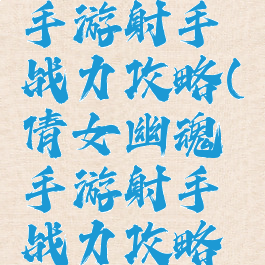 手游射手
战力攻略(
倩女幽魂
手游射手
战力攻略